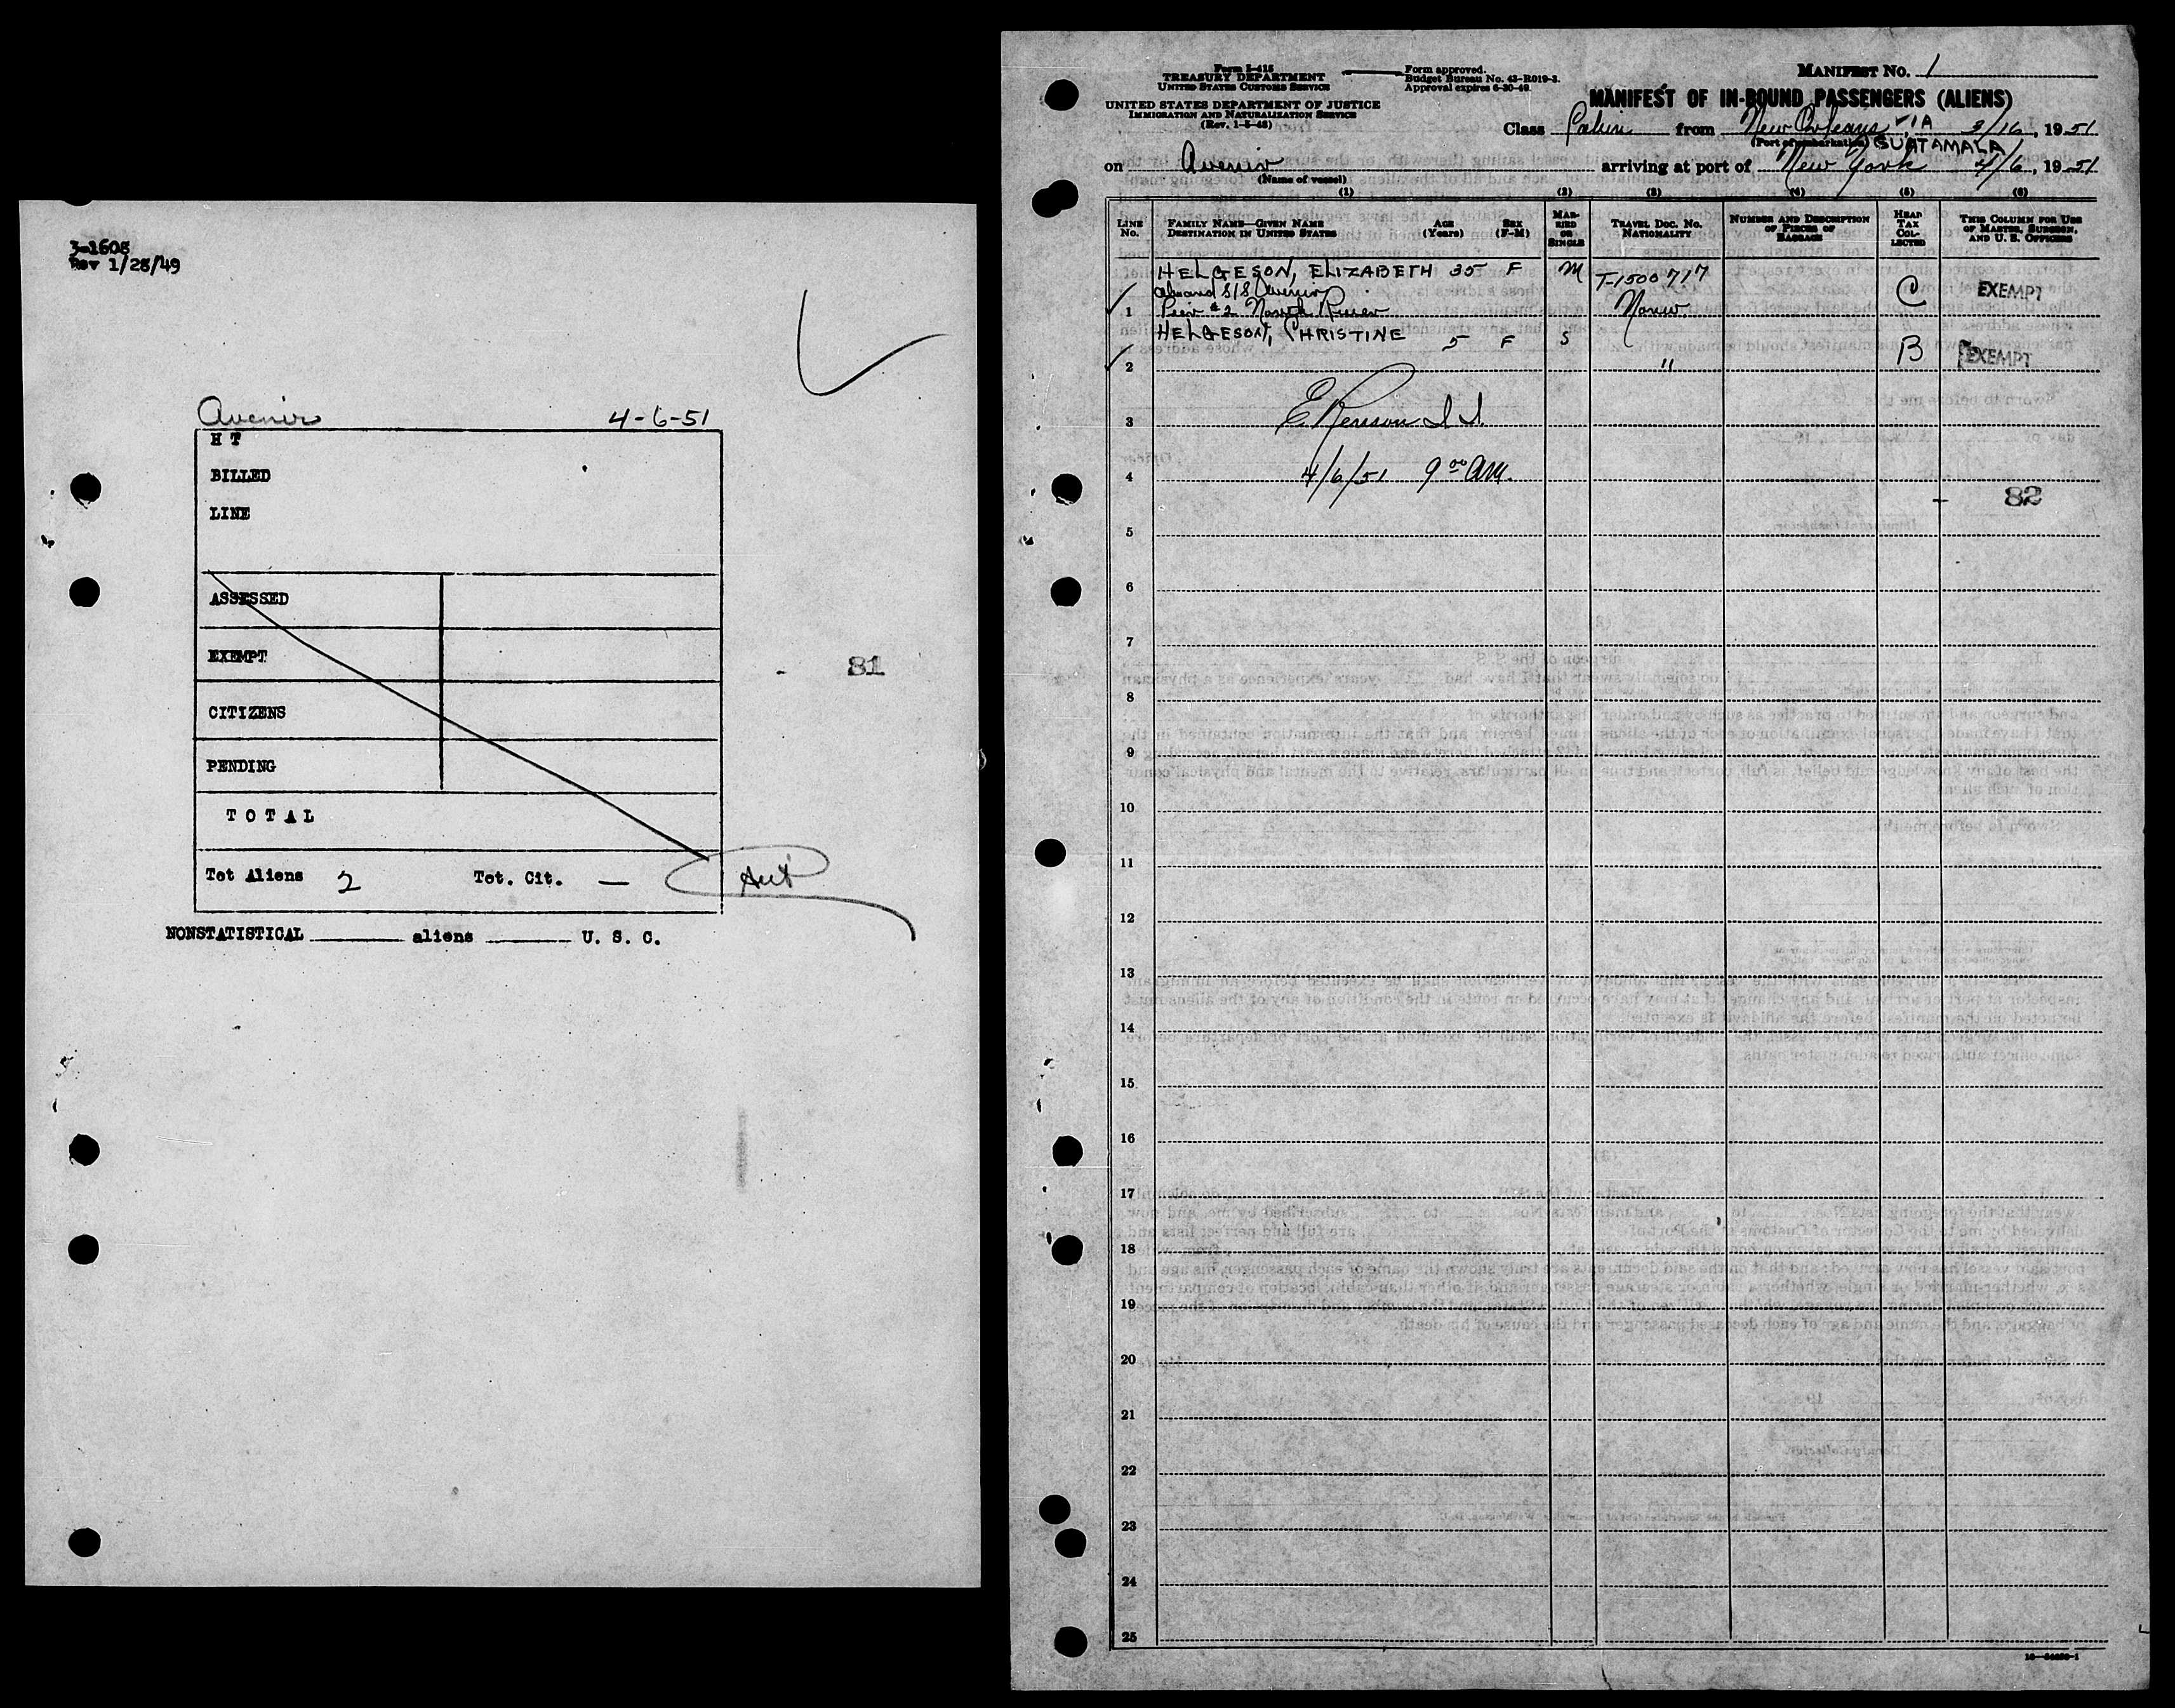 3-1608
Rev 1/28/49
Avenir 4-6-51
H T
BILLED
LINE
ASSESSED
EXEMPT
CITIZENS
PENDING
T O T A L
Tot Aliens 2 Tot. Cit. —
NONSTATISTICAL ______ aliens ______ U. S. C.
- 81
Form I-415
TREASURY DEPARTMENT
UNITED STATES CUSTOMS SERVICE
UNITED STATES DEPARTMENT OF JUSTICE
IMMIGRATION AND NATURALIZATION SERVICE
(Rev. 1-5-48)
Form approved.
Budget Bureau No. 43-R019-3.
Approval expires 6-30-49.
MANIFEST No. 1
MANIFEST OF IN-BOUND PASSENGERS (ALIENS)
Class Cabin from New Orleans VIA 3/16, 1951
(Port of embarkation) GUATAMALA
on Avenir arriving at port of New York 4/6, 1951
(Name of vessel)
(1) (2) (3) (4) (5) (6)
LINE No.
FAMILY NAME—GIVEN NAME
DESTINATION IN UNITED STATES
AGE (Years)
SEX (F-M)
MARRIED OR SINGLE
TRAVEL DOC. No.
NATIONALITY
NUMBER AND DESCRIPTION OF PIECES OF BAGGAGE
HEAD TAX COLLECTED
THIS COLUMN FOR USE OF MASTER, SURGEON, AND U. S. OFFICERS
HELGESON, ELIZABETH 35 F M T-1500717
aboard S/S Avenir C EXEMPT
1 Pier #2 North River Norw
HELGESON, CHRISTINE 5 F S
2 " B EXEMPT
3
4 4/6/51 9 00 AM.
- 82
5
6
7
8
9
10
11
12
13
14
15
16
17
18
19
20
21
22
23
24
25